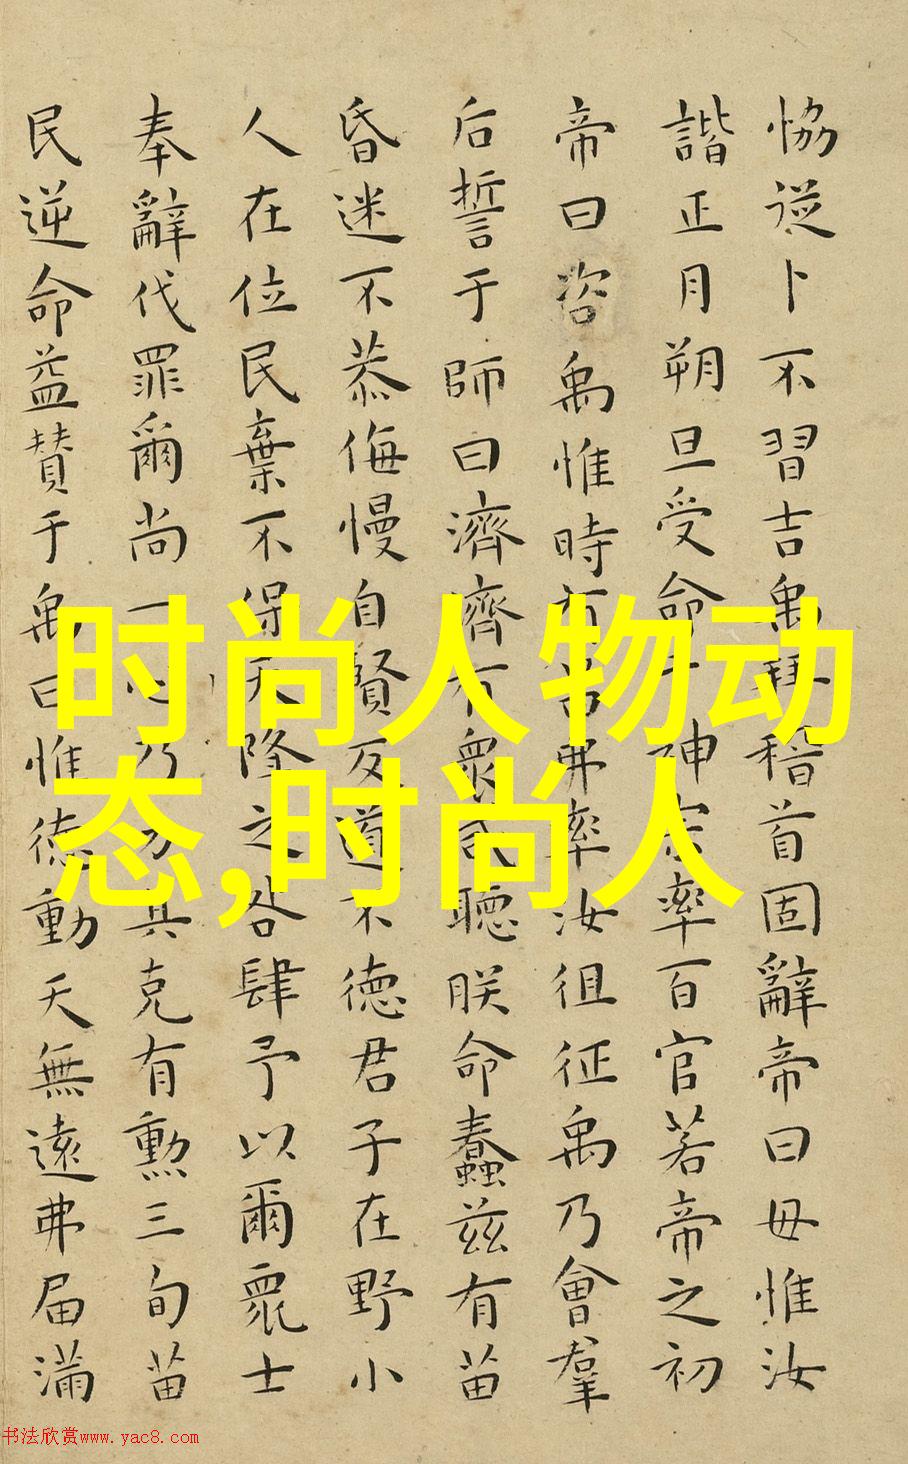 恊從卜不習吉禹拜稽首固辭帝曰毋惟汝
諧正月朔旦受命于神宗率百官若帝之初
帝曰咨禹惟時有苗弗率汝徂征禹乃會羣
后誓于師曰濟濟有衆咸聽朕命蠢茲有苗
昏迷不恭侮慢自賢反道不徳君子在野小
人在位民棄不保天降之咎肆予以爾衆士
奉辭伐罪爾尚一心乃力其克有勲三旬苗
民逆命益賛于禹曰惟徳動天無遠弗届滿
时尚人物动
态,时尚人
书法欣赏www.yac8.com